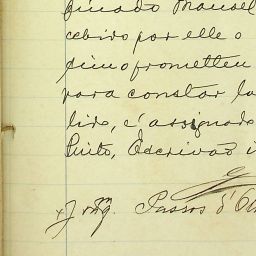 finado Manoel
cebido por elle o
sim o prometteu
para constar la
lido, é assignado
Pinto, Escrivão i
Passos d'